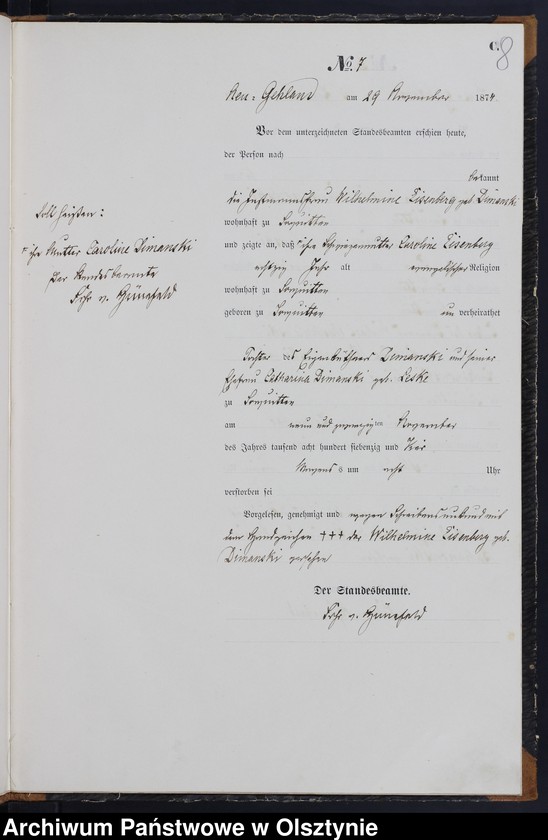 C.
8
No. 7
Neu-Gehland am 29 November 1874.
Vor dem unterzeichneten Standesbeamten erschien heute,
der Person nach
bekannt
die Instmannsfrau Wilhelmine Eisenberg geb. Dimanski
wohnhaft zu Sonnitten
und zeigte an, daß ihre Schwiegermutter Caroline Eisenberg
achtzig Jahr alt evangelischer Religion
wohnhaft zu
geboren zu unverheirathet
Tochter des Eigenkäthners Dimanski und seiner
Ehefrau Catharina Dimanski geb. Leske
zu
am neun und zwanzigten November
des Jahres tausend acht hundert siebenzig und Vier
Morgens um acht Uhr
verstorben sei
Vorgelesen, genehmigt und wegen Schreibensunkunde mit
dem Handzeichen +++ der Wilhelmine Eisenberg geb.
Dimanski versehen
Der Standesbeamte.
Frhr v.
Soll heißen:
ihre Mutter Caroline Dimanski
Der Standesbeamte
Frhr v.
Archiwum Państwowe w Olsztynie